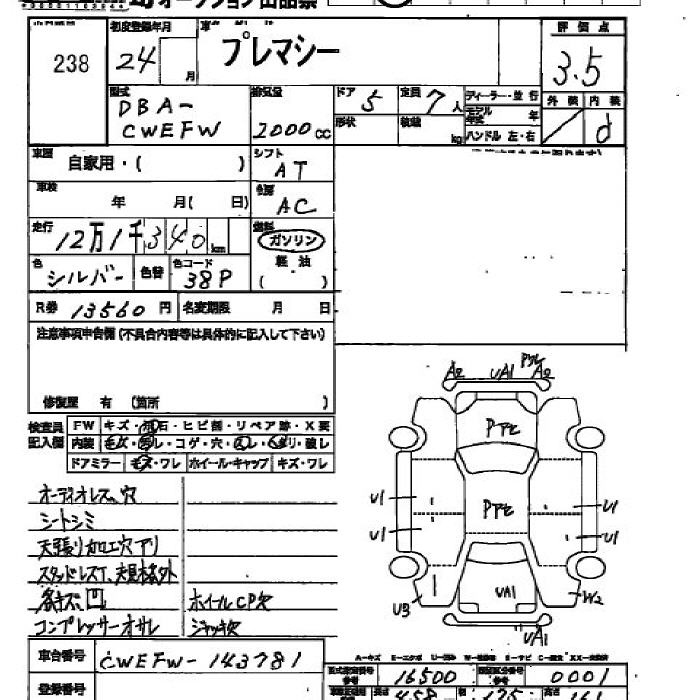 オークション出品票
初度登録年月
238
24
月
プレマシー
評価点
3.5
型式
DBA-
CWEFW
排気量
2000 cc
ドア 5
定員 7 人
形状
積載
kg
ディーラー・並行
モデル年式 年
ハンドル 左・右
外装 内装
d
車歴 自家用・( )
シフト AT
車検 年 月( 日)
冷房 AC
走行 12万1千340 km
燃料 ガソリン
軽油
( )
色 シルバー 色替 色コード 38P
R券 13560 円 名変期限 月 日
注意事項申告欄(不具合内容等は具体的に記入して下さい)
修復歴 有 (箇所 )
検査員記入欄
FW キズ・飛石・ヒビ割・リペア跡・X要
内装
コゲ・穴
破レ
ドアミラー キズ・ワレ ホイール・キャップ キズ・ワレ
オーディオレス、穴
シートシミ
天張り加工穴アリ
各キズ、凹
コンプレッサーオサレ
ホイールCP欠
ジャッキ欠
A2 UA1 A2
Pアセ
Pアセ
U1 U1
U1 U1
UA1
U3 W2
UA1
車台番号 CWEFW-143781
登録番号
型式指定番号 16500
類別区分番号 0001
長さ 458
幅 175
高さ 161